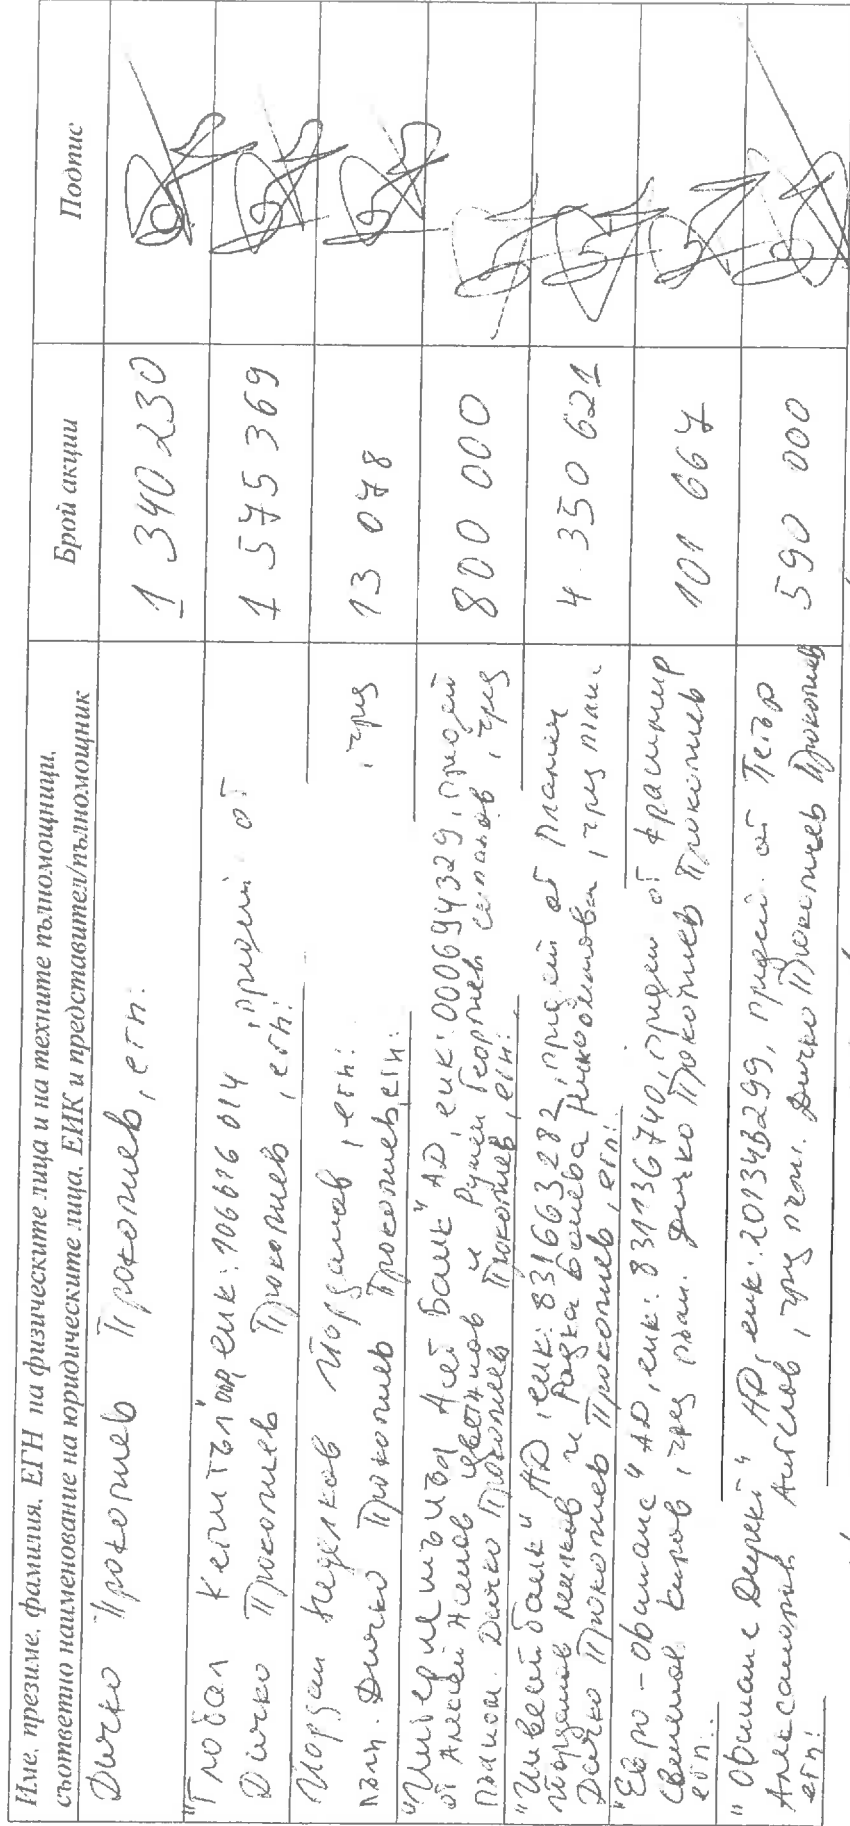 Име, презиме, фамилия, ЕГН на физическите лица и на техните пълномощници,
съответно наименование на юридическите лица, ЕИК и представител/пълномощник
Брой акции
Подпис
Дичко Прокопиев Прокопиев, егн:
1 340 230
"Глобал Кепитъл" еик: 106616014, предст. от
Дичко Прокопиев Прокопиев, егн:
1 575 369
Йордан Неделков Йорданов, егн: , чрез
пълн. Дичко Прокопиев Прокопиев, егн:
13 078
Асет Банк" АД, еик: 000694329, предст
от Алексей Цветанов и Румен Георгиев , чрез
Дичко Прокопиев Прокопиев, егн:
800 000
"Инвестбанк" АД, еик: 831663282, предст от
Йорданов и Радка Бонева , чрез пълн.
Дичко Прокопиев Прокопиев, егн:
4 350 621
"Евро - АД, еик: 831136740, предст от Красимир
Киров, чрез пълн. Дичко Прокопиев Прокопиев
егн:
101 667
Директ" АД, еик: , предст. от Петър
Александров Ангелов, чрез пълн. Дичко Прокопиев Прокопиев
егн:
590 000